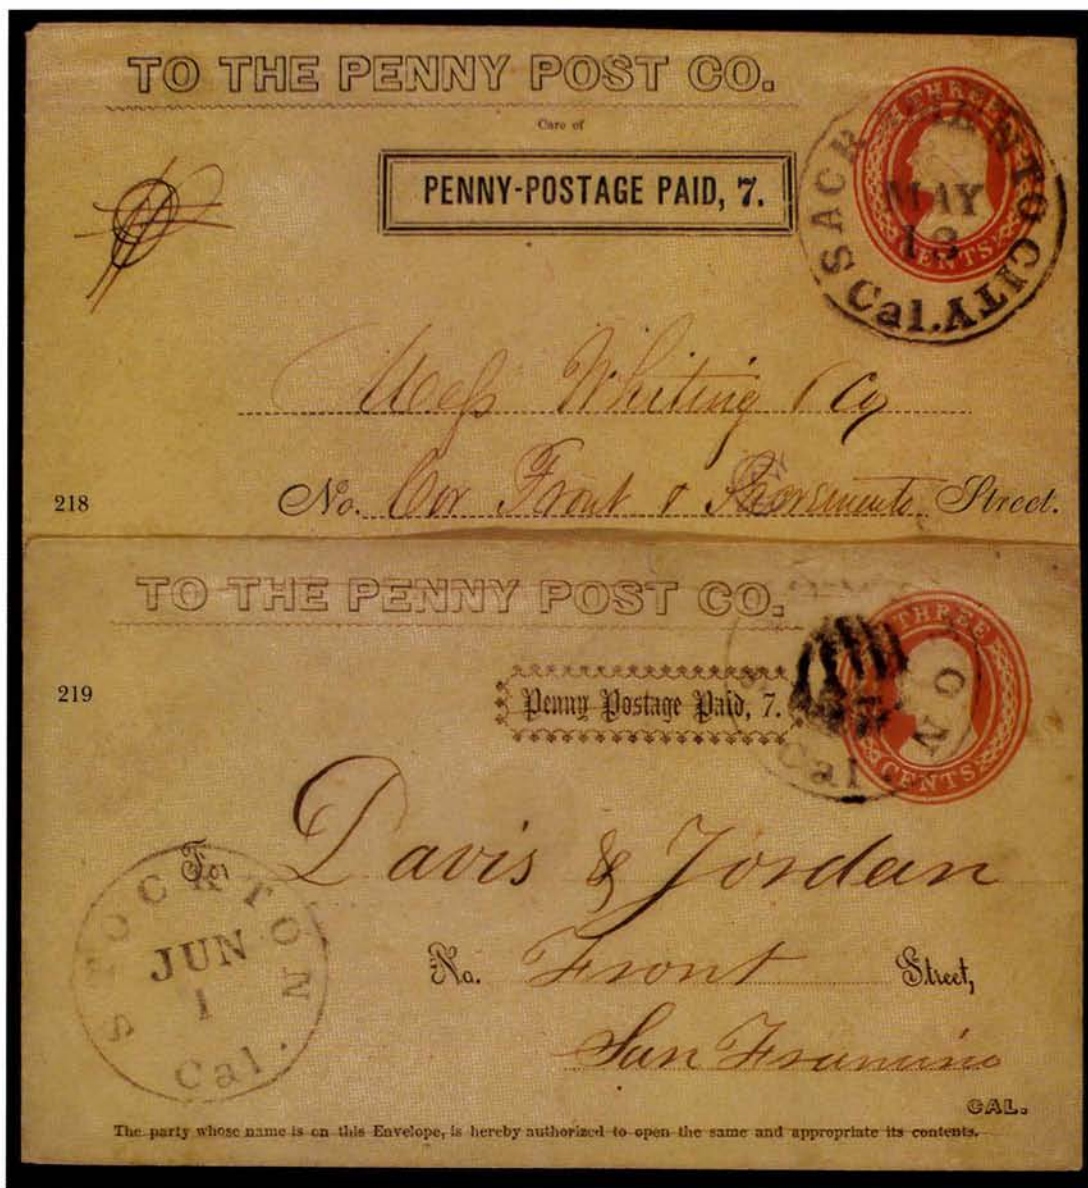 TO THE PENNY POST CO.
Care of
PENNY-POSTAGE PAID, 7.
THREE
CENTS
SACRAMENTO CITY
MAY
13
Cal.
Mess Whiting & Co
218
No. Cor Front & Sacramento Street.
TO THE PENNY POST CO.
THREE
CENTS
219
Penny Postage Paid, 7.
Cal
To, Davis & Jordan
STOCKTON
JUN
1
Cal.
No. Front Street,
San Francisco
CAL.
The party whose name is on this Envelope, is hereby authorized to open the same and appropriate its contents.